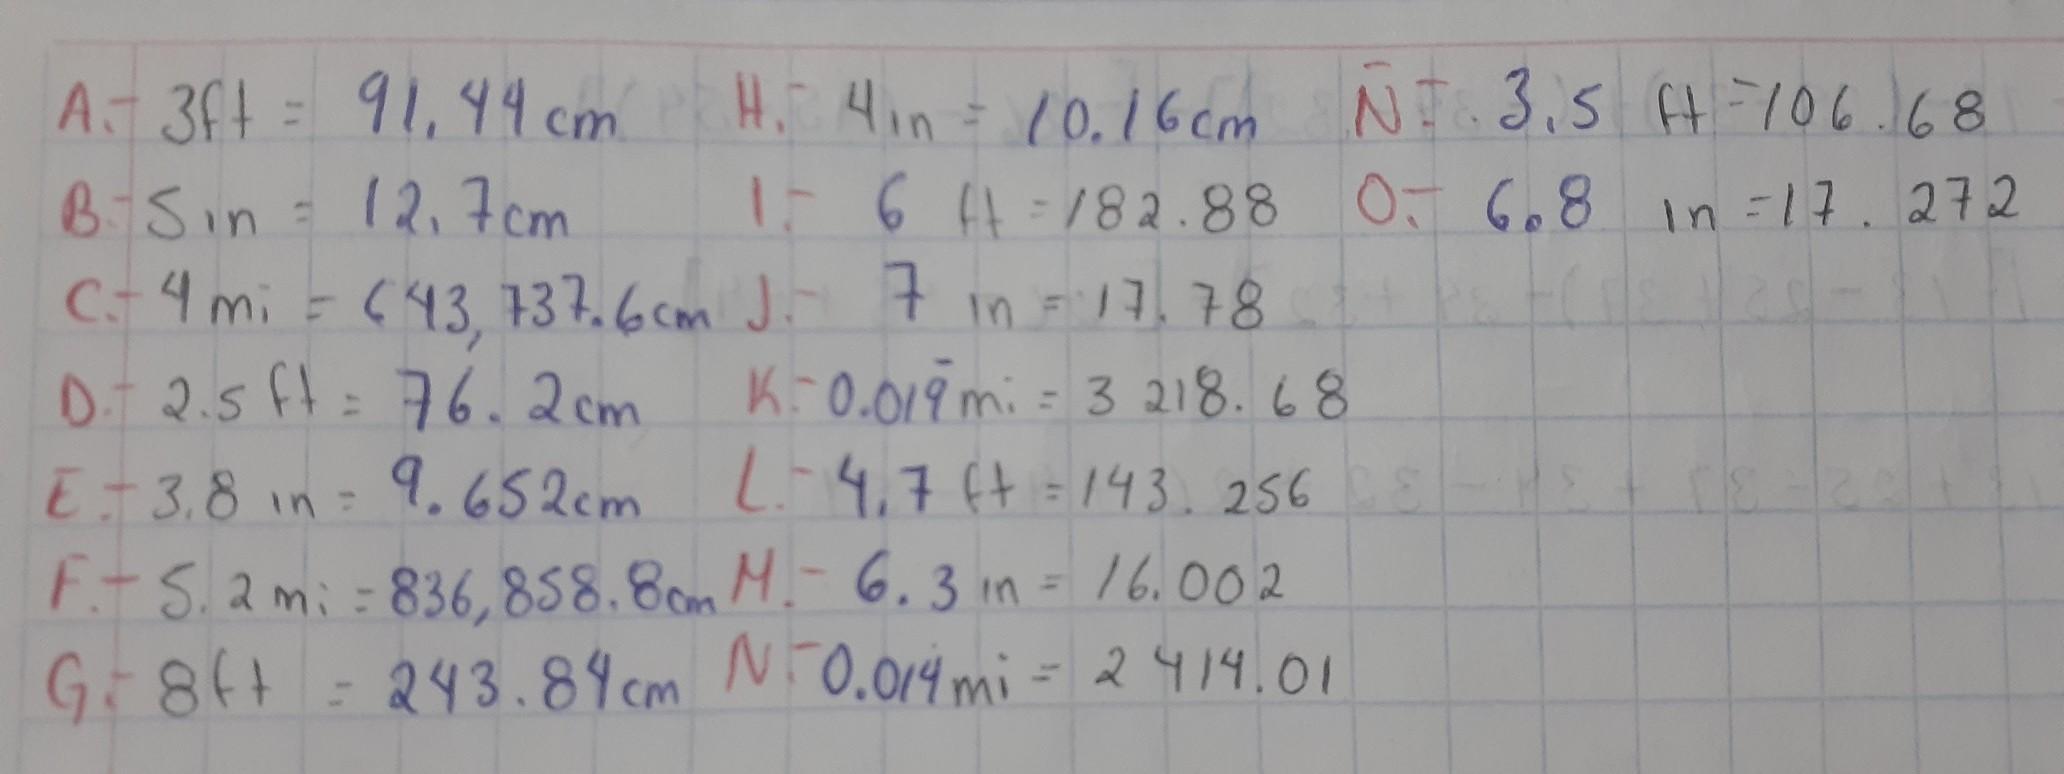 A.- 3ft = 91.44cm
B.- 5in = 12.7cm
C.- 4mi = 643,737.6cm
D.- 2.5ft = 76.2cm
E.- 3.8 in = 9.652cm
F.- 5.2mi = 836,858.8cm
G.- 8ft = 243.84cm
H.- 4in = 10.16cm
I.- 6 ft = 182.88
J.- 7 in = 17.78
K.- 0.019̄mi = 3 218.68
L.- 4.7 ft = 143.256
M.- 6.3 in = 16.002
N.- 0.014mi = 2 414.01
Ñ.- 3.5 ft = 106.68
O.- 6.8 in = 17.272